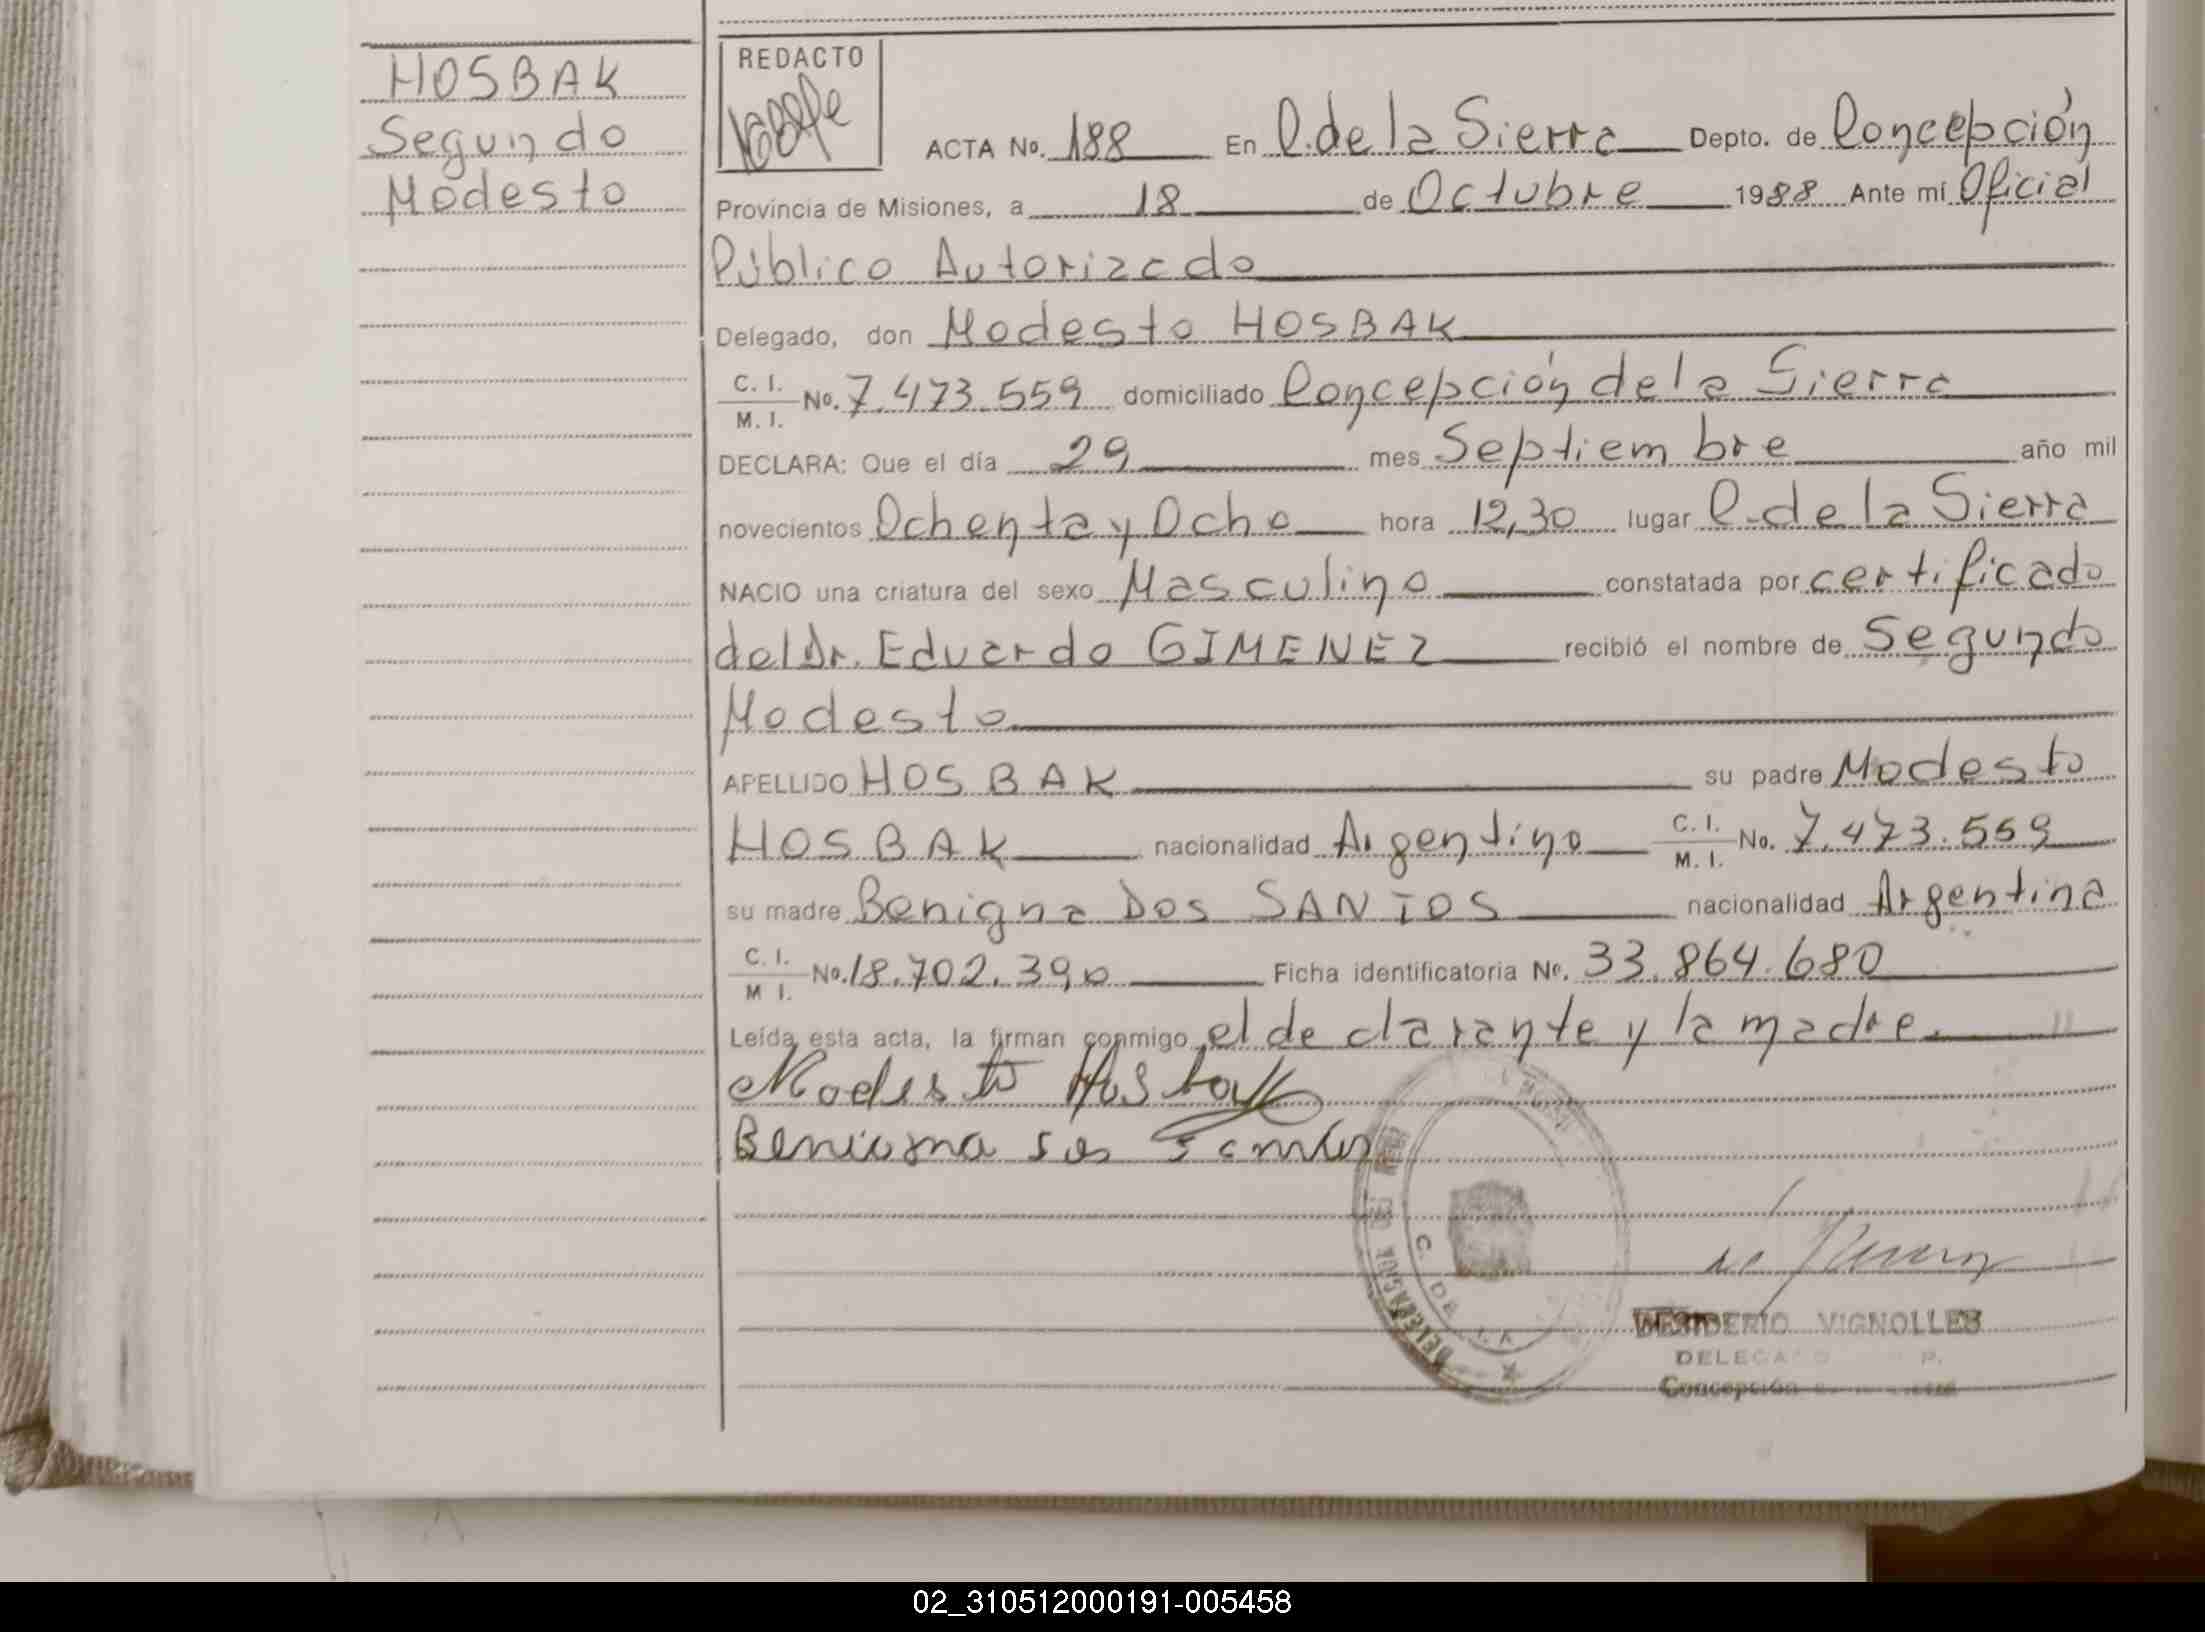 HOSBAK
Segundo
Modesto
REDACTO
ACTA No. 188 En C. de la Sierra Depto. de Concepción
Provincia de Misiones, a 18 de Octubre 1988 Ante mi Oficial
Público Autorizado
Delegado, don Modesto HOSBAK
C. I.
M. I. No. 7.473.559 domiciliado Concepción de la Sierra
DECLARA: Que el día 29 mes Septiembre año mil
novecientos Ochenta y Ocho hora 12,30 lugar C. de la Sierra
NACIO una criatura del sexo Masculino constatada por certificado
del Dr. Eduardo GIMENEZ recibió el nombre de Segundo
Modesto
APELLIDO HOSBAK su padre Modesto
HOSBAK nacionalidad Argentino C. I. M. I. No. 7.473.559
su madre Benigna Dos SANTOS nacionalidad Argentina
C. I.
M I. No. 18.702.390 Ficha identificatoria No. 33.864.680
Leída esta acta, la firman conmigo el declarante y la madre.
Modesto Hosbak
Benigna dos Santos
DELEGACION
C. DE LA
DESIDERIO VIGNOLLES
Concepción
02_310512000191-005458